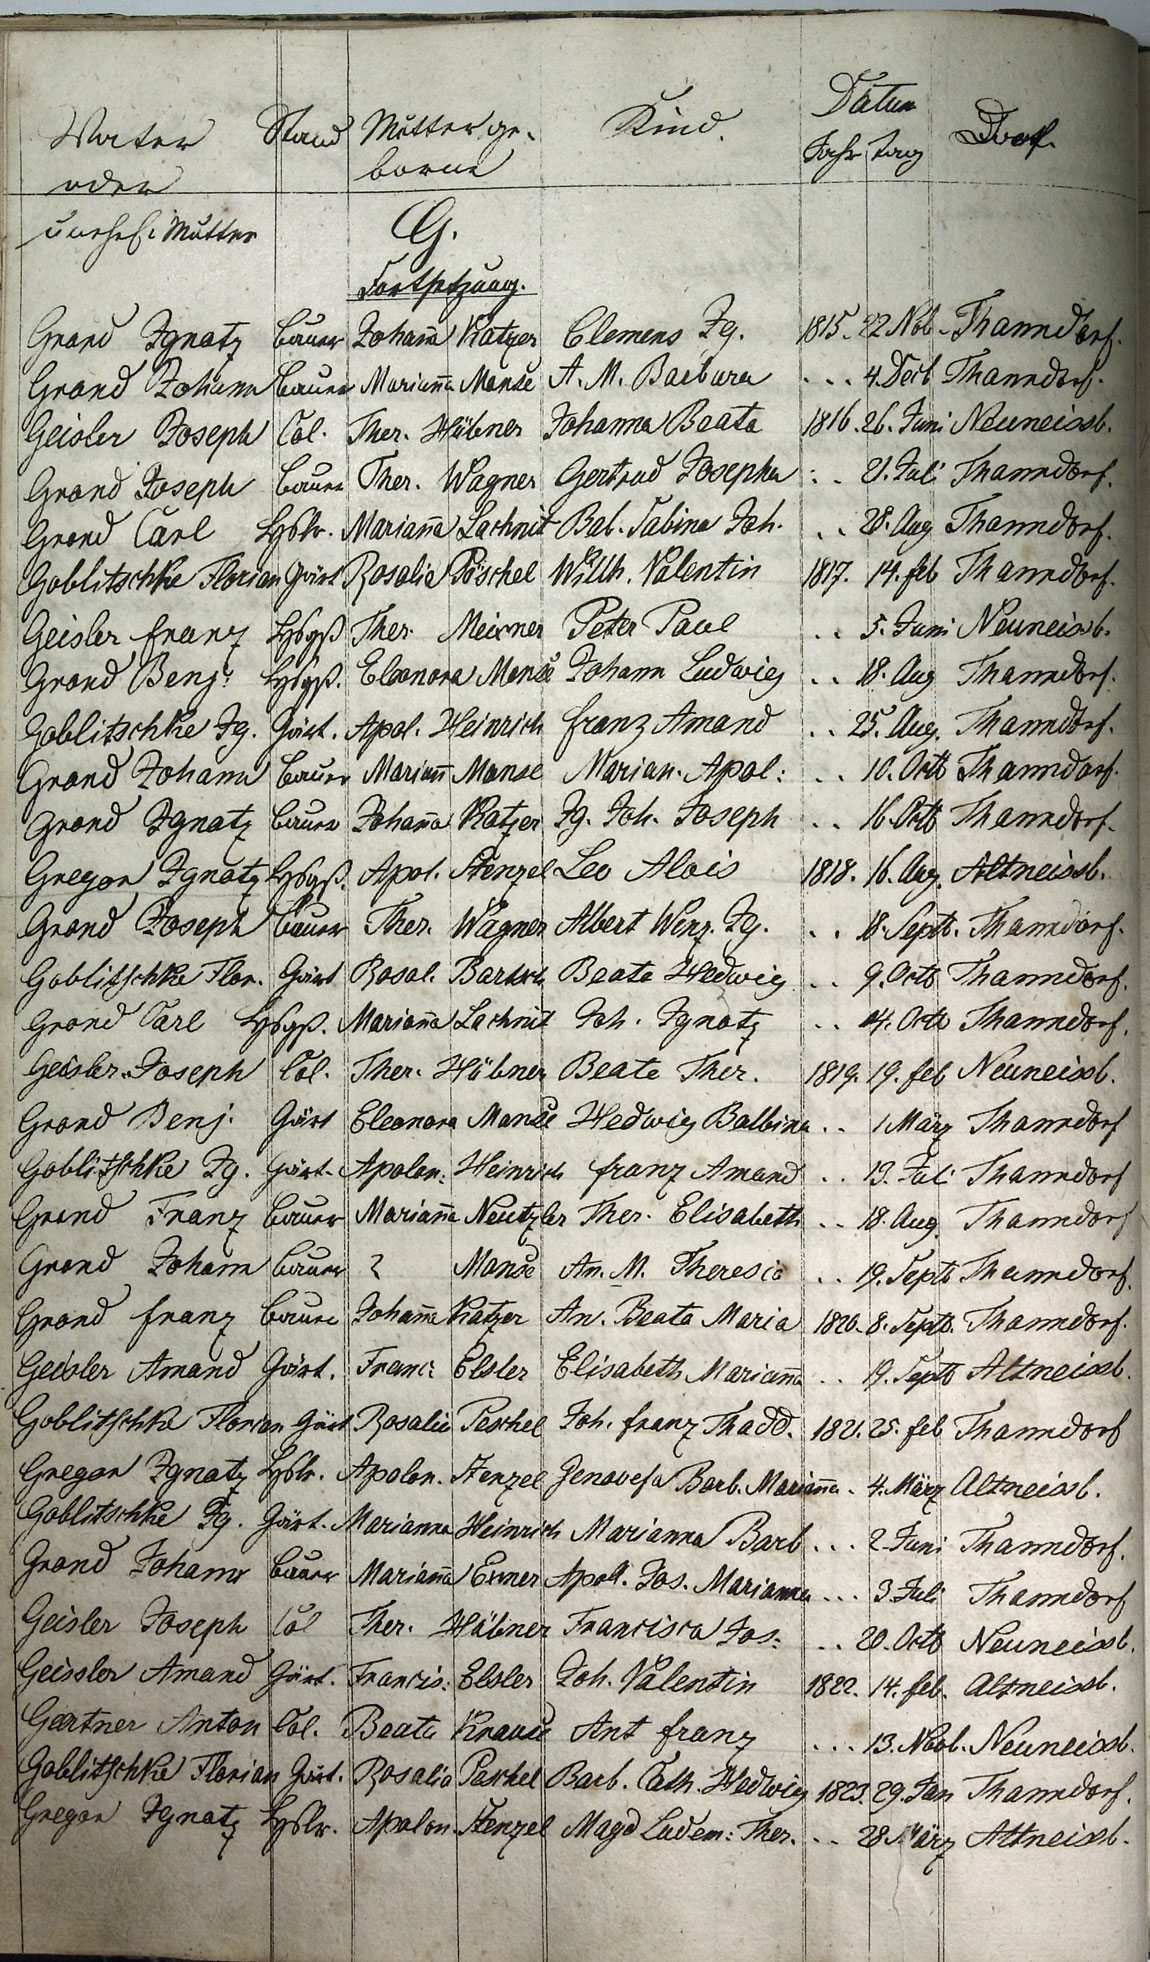 Vater Stand Mutter ge- Kind. Datum Dorf.
oder borne Jahr Tag
unehel. Mutter G.
Fortsetzung.
Grand Ignatz Bauer Johanna Katzer Clemens Ig. 1815. 22 Nob. Thanndorf.
Grand Johann Bauer Marianna Manse A. M. Barbara . . . 4. Decb Thanndorf.
Geisler Joseph Col. Ther. Hübner Johanna Beata 1816. 26. Juni Neuneissb.
Grand Joseph Bauer Ther. Wagner Gertrud Josepha . . 21. Juli Thanndorf.
Grand Carl Hslr. Marianna Lachnit Bab. Sabina Joh. . . 28. Aug Thanndorf.
Goblitschke Florian Gärt Rosalia Pöschel Willh. Valentin 1817. 14. feb Thanndorf.
Geisler franz Hsgß Ther. Meixner Peter Paul . . 5. Juni Neuneissb.
Grand Benj. Hsgß. Eleonora Manse Johann Ludwig . . 18. Aug Thanndorf.
Goblitschke Ig. Gärt. Apol. Heinrich franz Amand . . 25. Aug. Thanndorf.
Grand Johann Bauer Mariann Manse Marian. Apol: . . 10. Octb Thanndorf.
Grand Ignatz Bauer Johanna Katzer Ig. Joh. Joseph . . 16. Octb Thanndorf.
Gregor Ignatz Hsgß. Apol. Stenzel Leo Alois 1818. 16. Aug. Altneissb.
Grand Joseph Bauer Ther. Wagner Albert Wenz. Ig. . . 18. Septb. Thanndorf.
Goblitschke Flor. Gärt Rosal. Bartsch Beata Hedwig . . 9. Octb Thanndorf.
Grand Carl Hsgß. Marianna Lachnit Joh. Ignatz . . 14. Octb Thanndorf.
Geisler Joseph Col. Ther. Hübner Beate Ther. 1819. 19. feb Neuneissb.
Grand Benj. Gärt Eleonora Manse Hedwig Balbina . . 1 März Thanndorf
Goblitschke Ig. Gärt. Apolon: Heinrich franz Amand . . 13. Juli Thanndorf
Grand Franz Bauer Marianna Neutzler Ther. Elisabeth . . 18. Aug Thanndorf
Grand Johann Bauer ? Manse An. M. Theresia . . 19. Septb Thanndorf.
Grand franz Bauer Johanna Katzer An. Beata Maria 1820. 8. Septb. Thanndorf.
Geisler Amand Gärt. Franc: Elsler Elisabeth Marianna . . 19. Septb Altneissb.
Goblitschke Florian Gärt Rosalie Peschel Joh. franz Thadd. 1821. 25. feb Thanndorf
Gregor Ignatz Hslr. Apolon. Stenzel Genovefa Barb. Marianna . 4. März Altneissb.
Goblitschke Ig. Gärt. Marianna Heinrich Marianna Barb . . . 2 Juni Thanndorf.
Grand Johann Bauer Marianna Exner Apoll. Jos. Marianna . . . 3 Juli Thanndorf
Geisler Joseph Col Ther. Hübner Francisca Jos: . . 20. Octb Neuneissb.
Geissler Amand Gärt. Francis: Elsler Joh. Valentin 1822. 14. feb. Altneissb.
Gertner Anton Col. Beata Krause Ant franz . . . 13. Nvb. Neuneissb.
Goblitschke Florian Gärt. Rosalia Peschel Barb. Cath. Hedwig 1823. 29. Jan Thanndorf.
Gregor Ignatz Hslr. Apolon. Stenzel Magd Ludem: Ther. . . 28 März Altneissb.